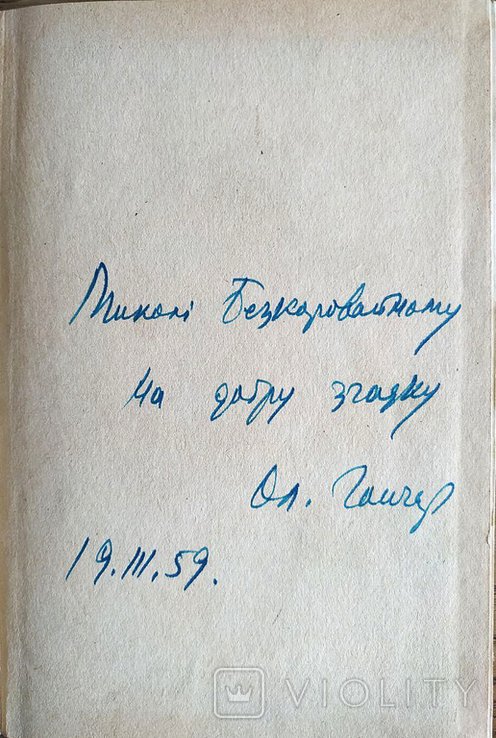 Миколі Безкоровайному
на добру згадку
Ол. Гончар
19.III.59.
VIOLITY